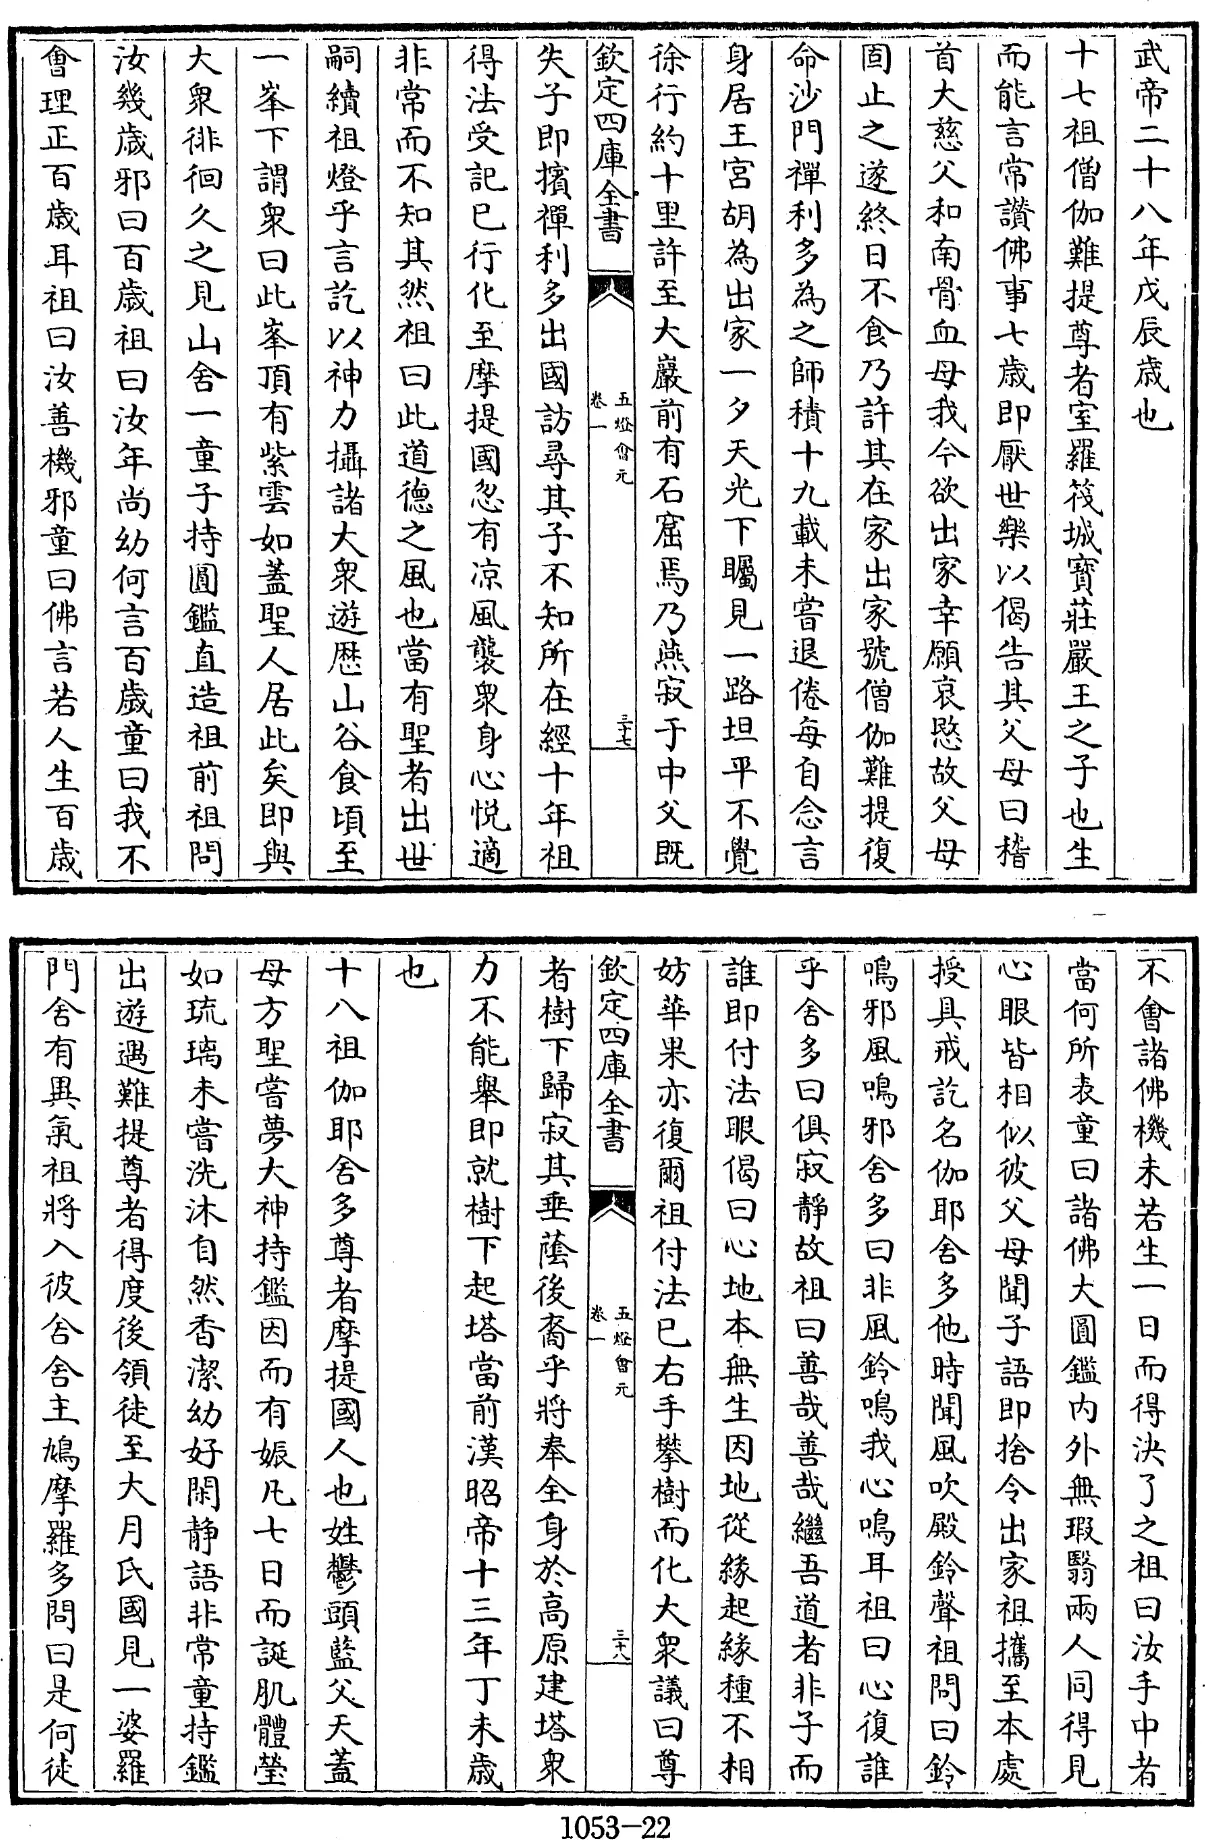 武帝二十八年戊辰歲也
十七祖僧伽難提尊者室羅筏城寶莊嚴王之子也生
而能言常讚佛事七歲即厭世樂以偈告其父母曰稽
首大慈父和南骨血母我今欲出家幸願哀愍故父母
固止之遂終日不食乃許其在家出家號僧伽難提復
命沙門禪利多為之師積十九載未嘗退倦每自念言
身居王宮胡為出家一夕天光下矚見一路坦平不覺
徐行約十里許至大巖前有石窟焉乃燕寂于中父既
欽定四庫全書
五燈會元
卷一
三十七
失子即擯禪利多出國訪尋其子不知所在經十年祖
得法受記已行化至摩提國忽有凉風襲衆身心悅適
非常而不知其然祖曰此道德之風也當有聖者出世
嗣續祖燈乎言訖以神力攝諸大衆遊歷山谷食頃至
一峯下謂衆曰此峯頂有紫雲如蓋聖人居此矣即與
大衆徘徊久之見山舍一童子持圓鑑直造祖前祖問
汝幾歲邪曰百歲祖曰汝年尚幼何言百歲童曰我不
會理正百歲耳祖曰汝善機邪童曰佛言若人生百歲
不會諸佛機未若生一日而得決了之祖曰汝手中者
當何所表童曰諸佛大圓鑑内外無瑕翳兩人同得見
心眼皆相似彼父母聞子語即捨令出家祖攜至本處
授具戒訖名伽耶舍多他時聞風吹殿鈴聲祖問曰鈴
鳴邪風鳴邪舍多曰非風鈴鳴我心鳴耳祖曰心復誰
乎舍多曰俱寂靜故祖曰善哉善哉繼吾道者非子而
誰即付法眼偈曰心地本無生因地從緣起緣種不相
妨華果亦復爾祖付法已右手攀樹而化大衆議曰尊
欽定四庫全書
五燈會元
卷一
三十八
者樹下歸寂其垂蔭後裔乎將奉全身於高原建塔衆
力不能舉即就樹下起塔當前漢昭帝十三年丁未歲
也
十八祖伽耶舍多尊者摩提國人也姓鬱頭藍父天蓋
母方聖嘗夢大神持鑑因而有娠凡七日而誕肌體瑩
如琉璃未嘗洗沐自然香潔幼好閑静語非常童持鑑
出遊遇難提尊者得度後領徒至大月氏國見一婆羅
門舍有異氣祖將入彼舍舍主鳩摩羅多問曰是何徒
1053-22